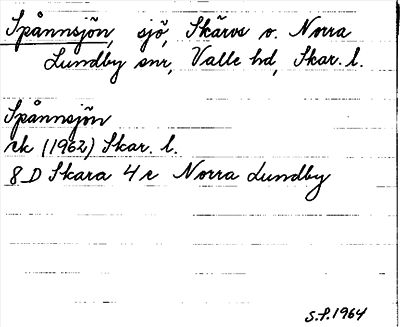 Spånnsjön, sjö, Skärvs o. Norra
Lundby snr, Valle hd, Skar. l.
Spånnsjön
rk (1962) Skar. l.
8 D Skara 4 e Norra Lundby
S.P. 1964